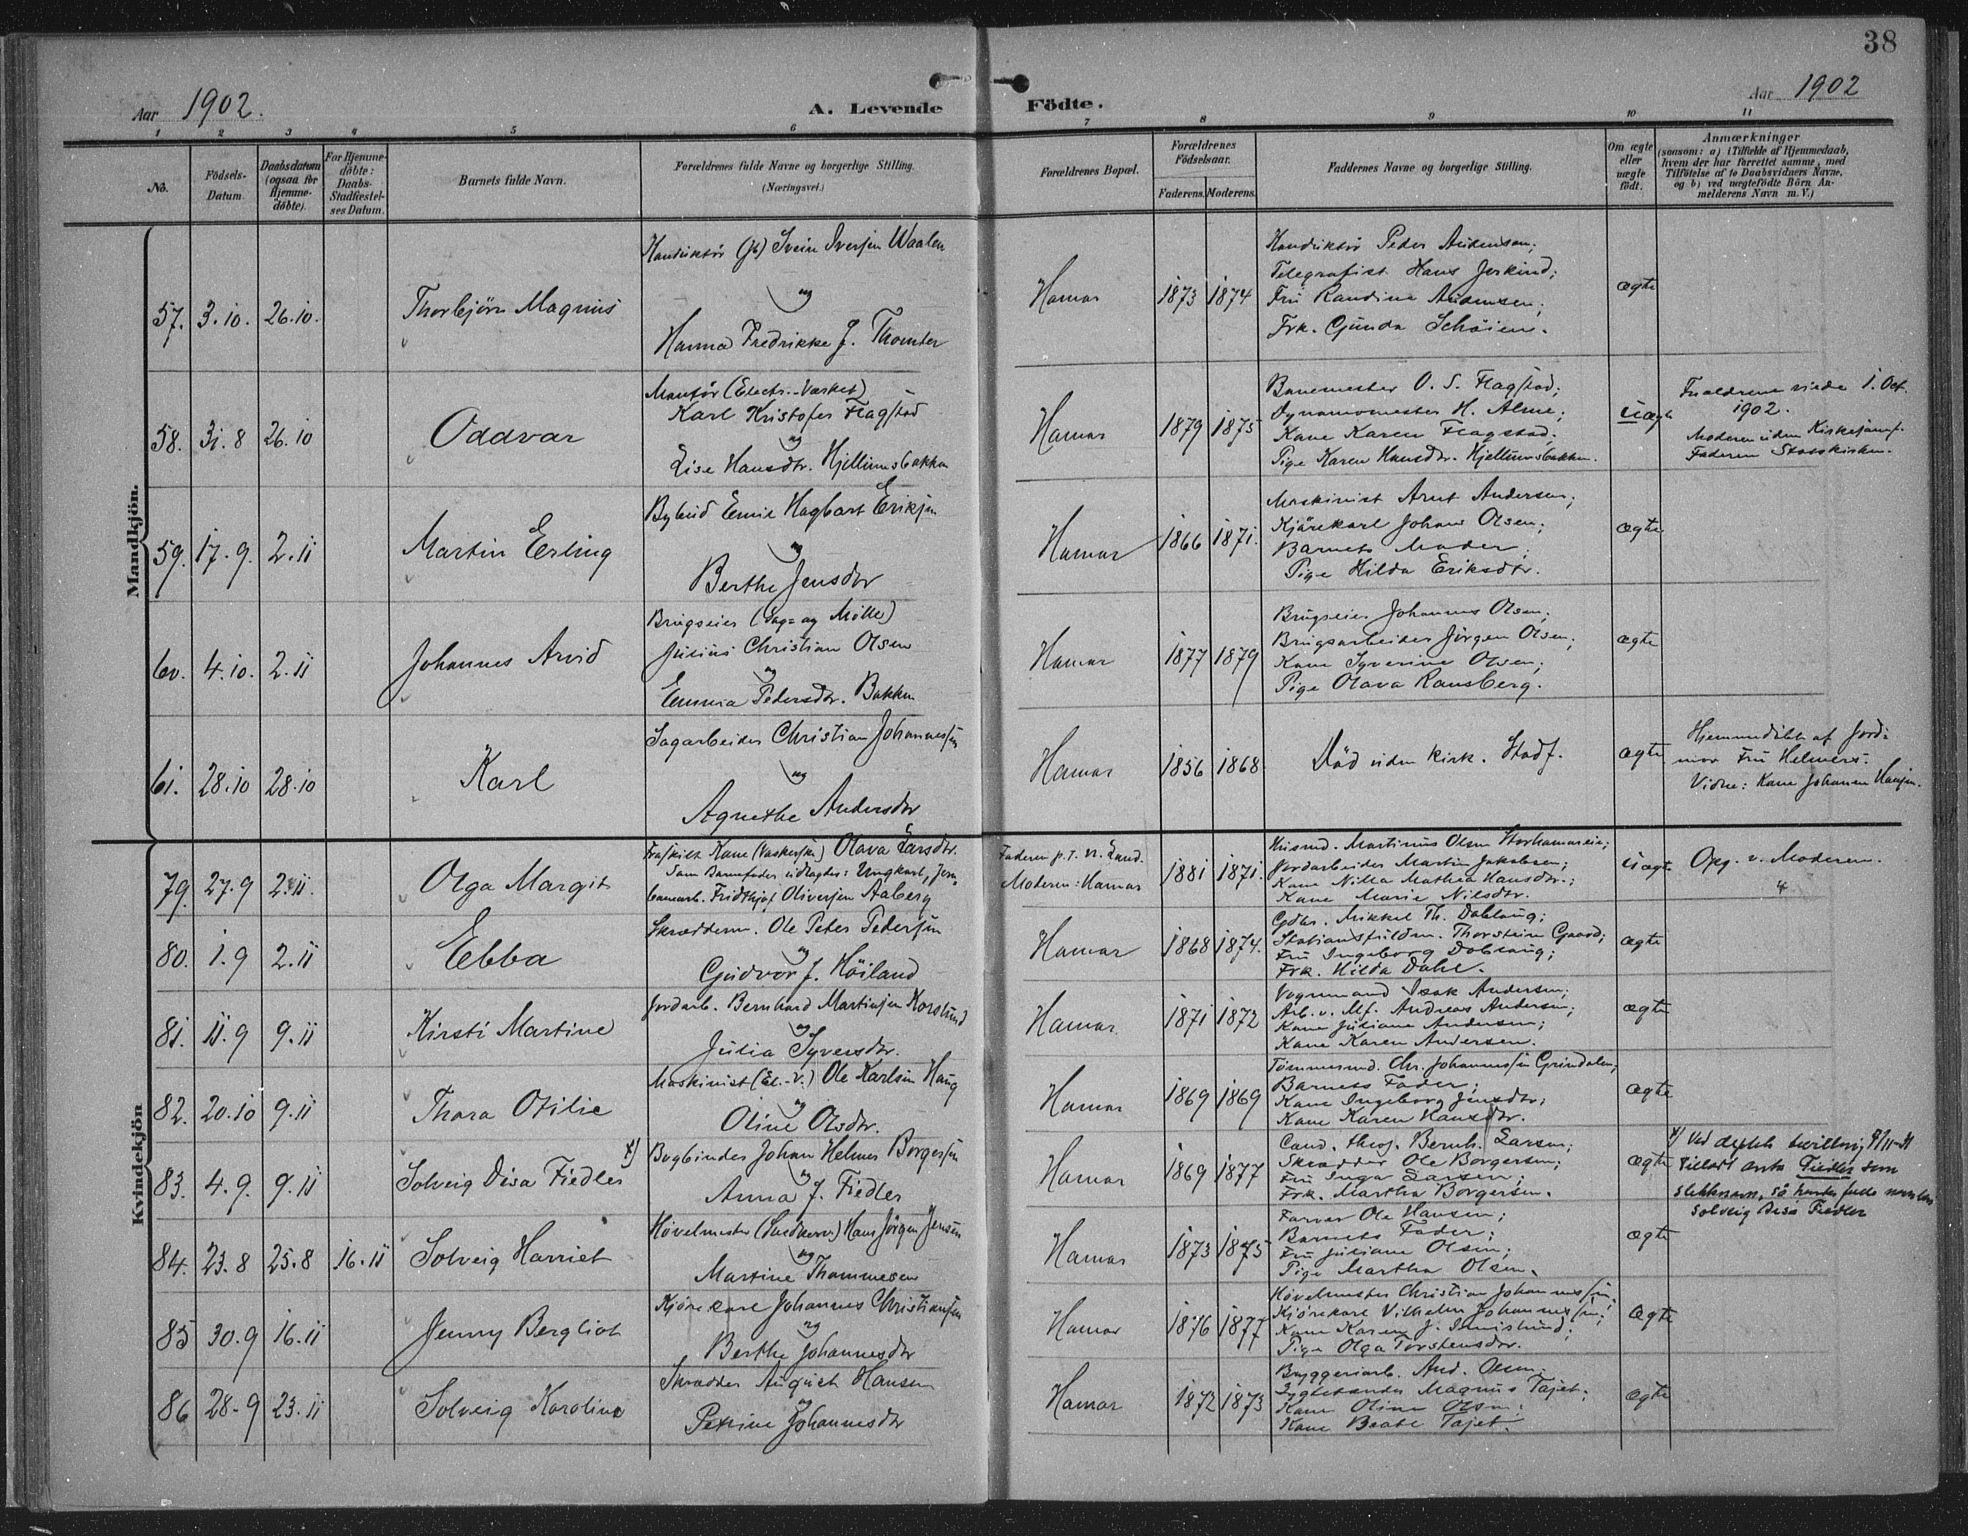 38
Aar 1902.
A. Levende Födte.
Aar 1902
1 2 3 4 5 6 7 8 9 10 11
No.
Födsels-Datum
Daabsdatum (ogsaa for Hjemme-döbte).
For Hjemme-döbte: Daabs-Stadfæstel-ses Datum.
Barnets fulde Navn.
Forældrenes fulde Navne og borgerlige Stilling. (Næringsvei.)
Forældrenes Bopæl.
Forældrenes Födselsaar.
Faderens. Moderens.
Faddernes Navne og borgerlige Stilling.
Om ægte eller uægte födt.
Anmærkninger
(saasom: a) i Tilfælde af Hjemmedaab, hvem der har forrettet samme, med Tilföielse af to Daabsvidners Navne, og b) ved uægtefödte Börn Anmelderens Navn m. V.)
Mandkjön.
57. 3.10. 26.10. Thorbjörn Magnus
Konduktör (jb) Svein Iversen Waalen
og
Hanna Fredrikke J. Thomter
Hamar 1873 1874
Konduktör Peder Andensen;
Telegrafist Hans Jerkind;
Fru Randine Andensen;
Frk. Gunda Schöien.
ægte
58. 31.8 26.10 Oddvar
Montör (Electr.-Værket)
Karl Kristofer Flagstad
og
Lise Hansdtr. Hjellumsbakken
Hamar 1879 1875
Banemester O. S. Flagstad;
Dynamomester H. Alme;
Kone Karen Flagstad;
Pige Karen Hansdtr. Hjellumsbakken.
uægte
Forældrene viede 1. Oct. 1902.
Moderen uden Kirkesamf.
Faderen Statskirken.
59. 17.9. 2.11 Martin Erling
Bybud Emil Hagbart Eriksen
og
Berthe Jensdtr
Hamar 1866 1871.
Maskinist Arnt Andersen;
Kjörekarl Johans Olsen;
Barnets Moder;
Pige Hilda Eriksdtr.
ægte
60. 4.10. 2.11 Johannes Arvid
Brugseier (Sag= og Mölle)
Julius Christian Olsen
og
Emma Pedersdtr. Bakken
Hamar 1877 1879
Brugseier Johannes Olsen;
Brugsarbeider Jörgen Olsen;
Kone Syverine Olsen;
Pige Olava Ransberg.
ægte
61. 28.10 28.10 Karl
Sagarbeider Christian Johannessen
og
Agnethe Andersdtr
Hamar 1856 1868
Död uden kirk. Stadf.
ægte
Hjemmedöbt af Jord-
mor Fru Helmers.
Vidne: Kone Johanne Hansen.
Kvindekjön
79. 27.9 2.11. Olga Margit
Fraskilt Kone (Vaskerske) Olava Larsdtr.
Som Barnefader udlagtes: Ungkarl, Jern-
banearb. Fridthjof Oliversen Aaberg
Faderen p.t. N. Land.
Moderen: Hamar
1881 1871.
Husmd. Martinus Olsen Storhamareie;
Jordarbeider Martin Jakobsen;
Kone Nilla Mathea Hansdtr.;
Kone Marie Nilsdtr.
uægte
Opg. v. Moderen.
80. 1.9 2.11 Ebba
Skrædderm. Ole Peter Pedersen
og
Gudvor J. Höiland
Hamar 1868 1874.
Gdbr. Mikkel Th. Doblaug;
Stationsfuldm. Thorstein Gaard;
Fru Ingeborg Doblaug;
Frk. Hilda Dahl.
ægte
81. 11.9 9.11 Kirsti Martine
Jordarb. Bernhard Martinsen Korslund
og
Julia Syversdtr.
Hamar. 1871 1872
Vognmand Isak Andersen;
Arb. v. Mf. Andreas Andersen;
Kone Juliane Andersen;
Kone Karen Andersen.
ægte
82. 20.10 9.11 Thora Otilie
Maskinist (El.-V.) Ole Karlsen Haug
og
Oline Olsdtr.
Hamar 1869 1869
Tömmermd. Chr. Johannessen Gröndalen;
Barnets Fader;
Kone Ingeborg Jensdtr;
Kone Karen Hansdtr.
ægte
83. 4.9. 9.11 Solveig Disa Fiedler x)
Bogbinder Johan Helmer Borgersen
og
Anna J. Fiedler
Hamar 1869 1877
Cand. theol. Bernh. Larsen;
Skrædder Ole Borgersen;
Fru Inga Larsen;
Frk. Martha Borgersen.
ægte
x) Ved deptets bevilling
tillatt anta Fiedler som
slektsnavn, så hendes fulle navn
Solveig Disa Fiedler
84. 23.8 25.8 16.11 Solveig Harriet
Hövelmester Hans Jörgen Jensen
og
Martine Thommesen
Hamar 1873 1875
Farver Ole Hansen;
Barnets Fader;
Fru Juliane Olsen;
Pige Martha Olsen.
ægte
85 30.9 16.11 Jenny Bergliot
Kjörekarl Johannes Christiansen
og
Berthe Johannesdtr
Hamar 1876 1877
Hövelmester Christian Johannessen;
Kjörekarl Vilhelm Johannessen;
Kone Karen J.
Pige Olga Torstensdtr.
ægte
86 28.9 23.11 Solveig Karoline
Skrædder August Hansen
og
Petrine Johannesdtr
Hamar 1872 1873
Bryggeriarb. And. Olsen;
Magnus Tajet;
Kone Oline Olsen;
Kone Beate Tajet.
ægte